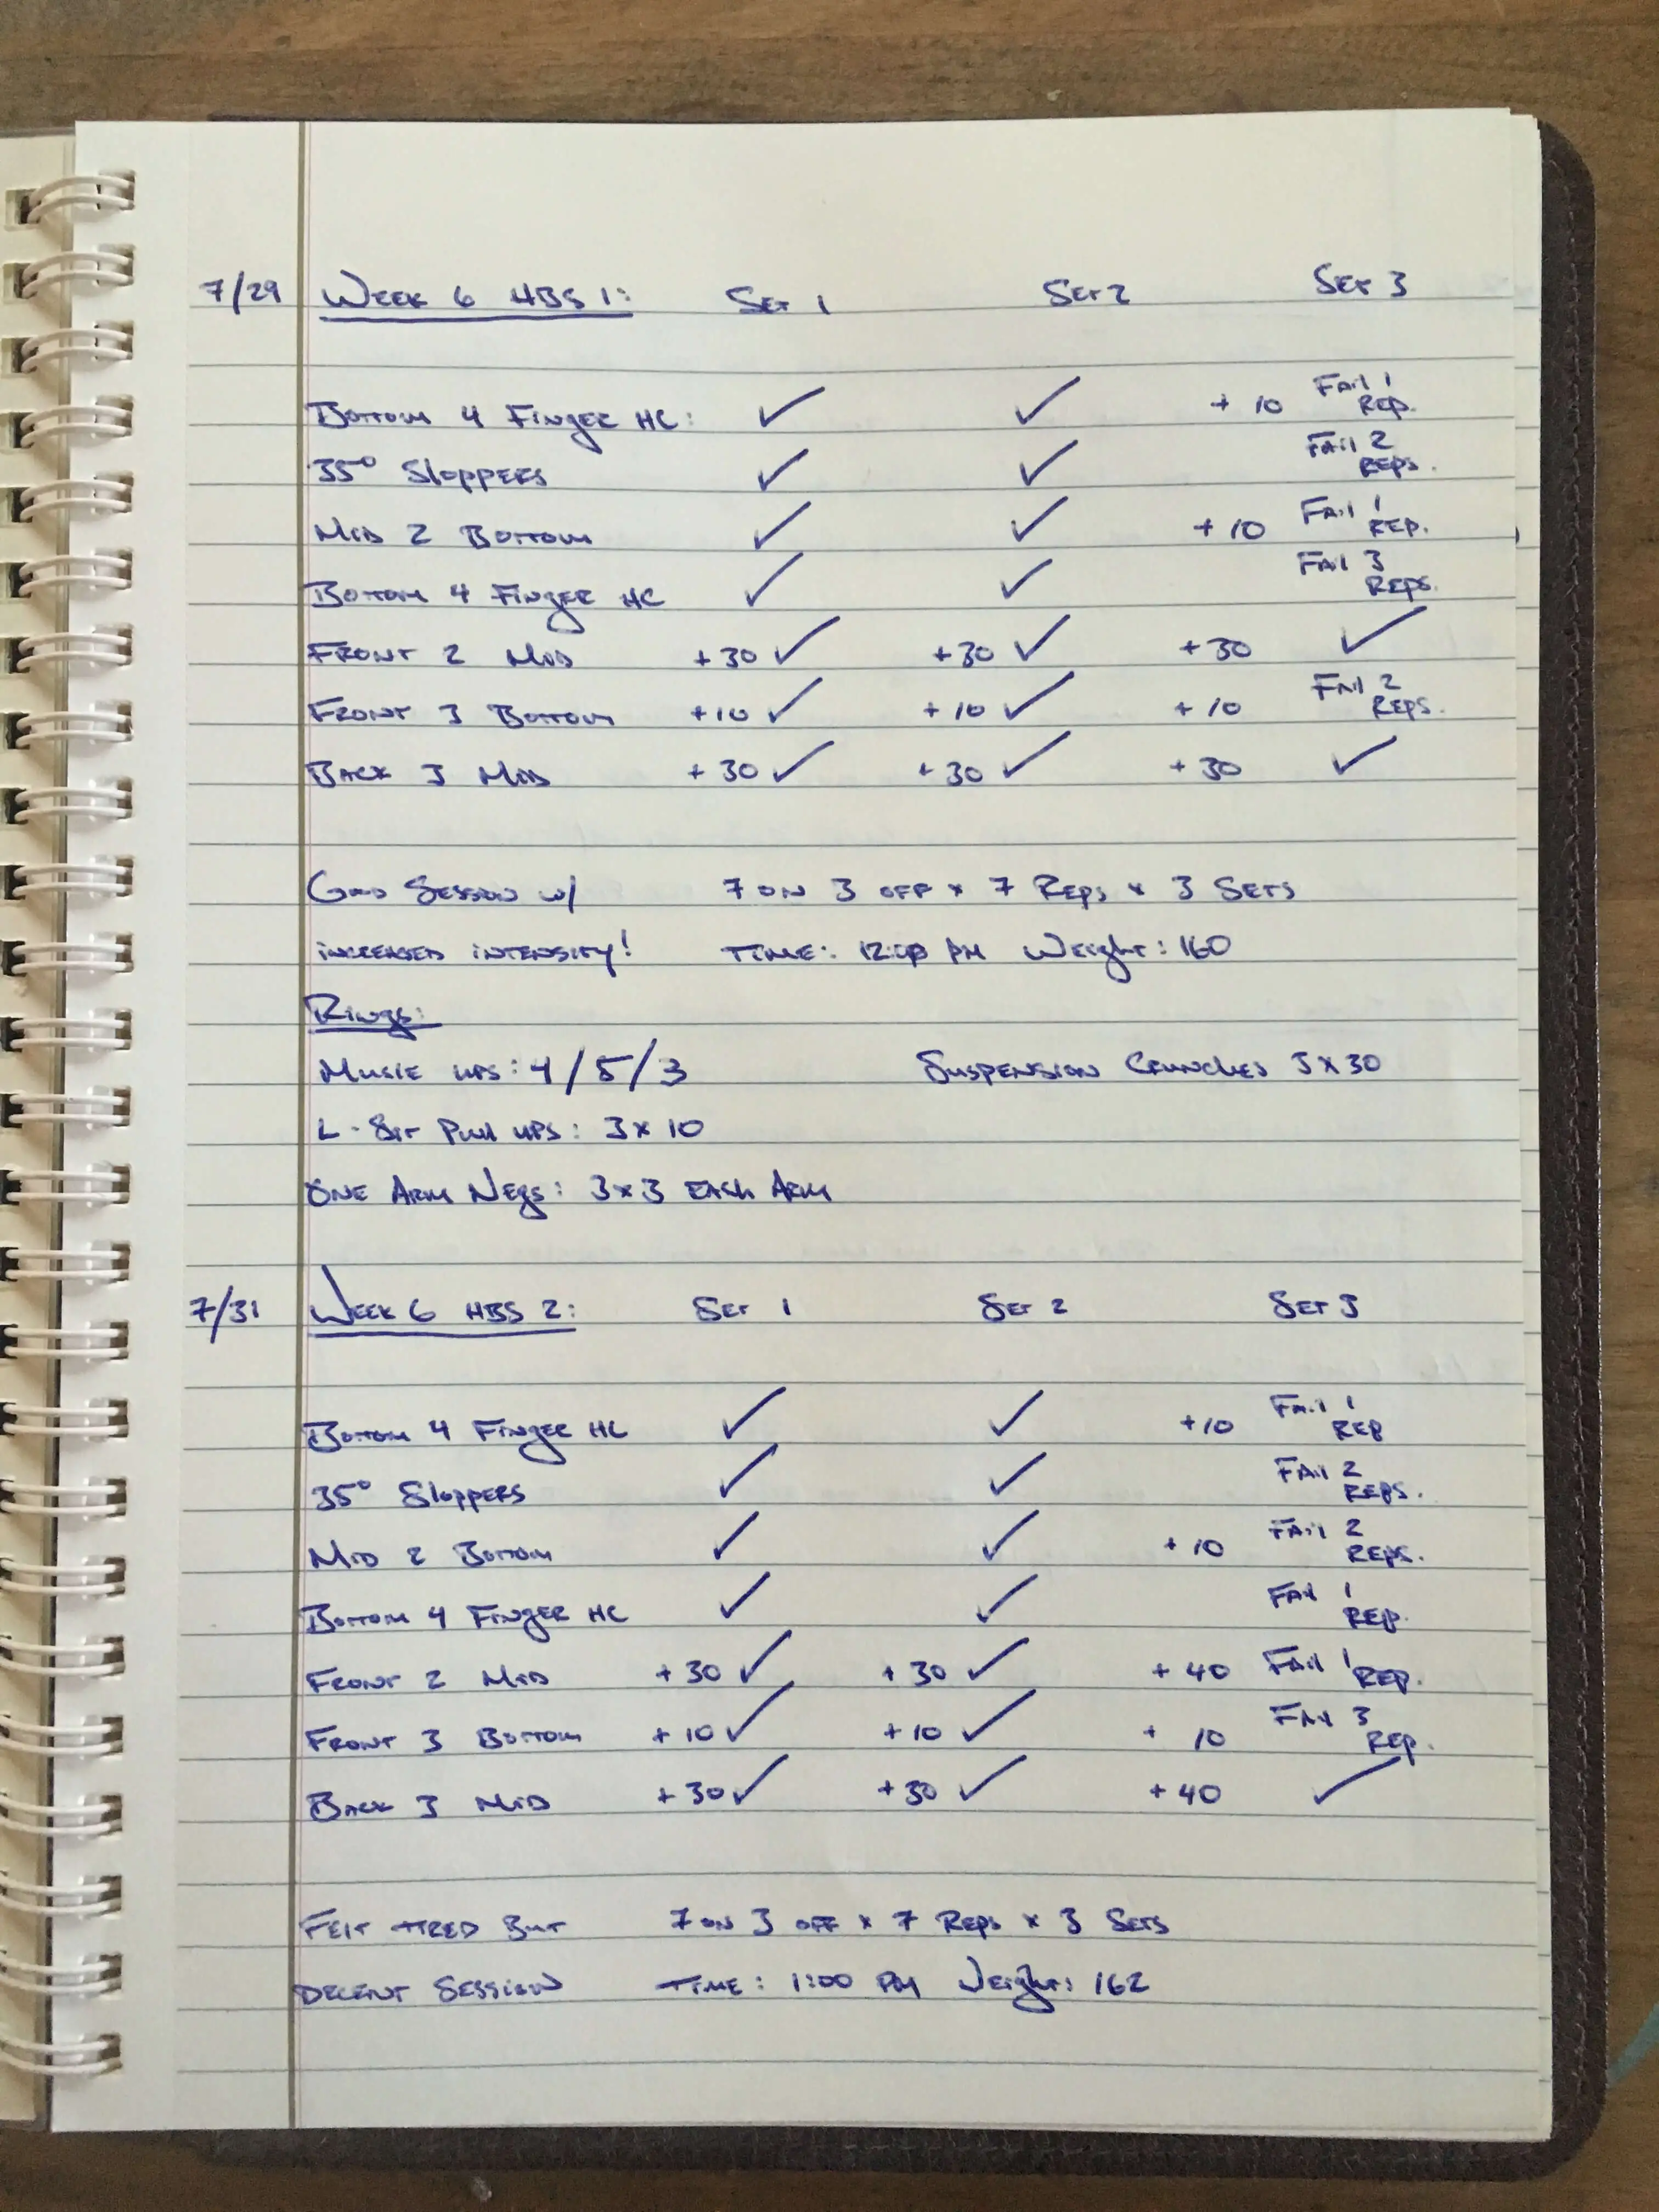 7/29 WEEK 6 HBS 1: SET 1 SET 2 SET 3
BOTTOM 4 FINGER HC: ✓ ✓ + 10 FAIL 1 REP.
35° SLOPPERS ✓ ✓ FAIL 2 REPS.
MID 2 BOTTOM ✓ ✓ + 10 FAIL 1 REP.
BOTTOM 4 FINGER HC ✓ ✓ FAIL 3 REPS.
FRONT 2 MID +30 ✓ +30 ✓ +30 ✓
FRONT 3 BOTTOM +10 ✓ +10 ✓ +10 FAIL 2 REPS.
BACK 3 MID +30 ✓ +30 ✓ +30 ✓
GOOD SESSION W/ 7 ON 3 OFF × 7 REPS × 3 SETS
INCREASED INTENSITY! TIME: PM WEIGHT: 160
RINGS:
MUSCLE UPS: 4/5/3 SUSPENSION CRUNCHES 3 X 30
L-SIT PULL UPS: 3 X 10
ONE ARM NEGS: 3 X 3 EACH ARM
7/31 WEEK 6 HBS 2: SET 1 SET 2 SET 3
BOTTOM 4 FINGER HC ✓ ✓ +10 FAIL 1 REP
35° SLOPPERS ✓ ✓ FAIL 2 REPS.
MID 2 BOTTOM ✓ ✓ + 10 FAIL 2 REPS.
BOTTOM 4 FINGER HC ✓ ✓ FAIL 1 REP.
FRONT 2 MID +30 ✓ +30 ✓ +40 FAIL 1 REP.
FRONT 3 BOTTOM +10 ✓ +10 ✓ + 10 FAIL 3 REP.
BACK 3 MID +30 ✓ +30 ✓ +40 ✓
FELT TIRED BUT 7 ON 3 OFF × 7 REPS × 3 SETS
DECENT SESSION TIME: 1:00 PM WEIGHT: 162